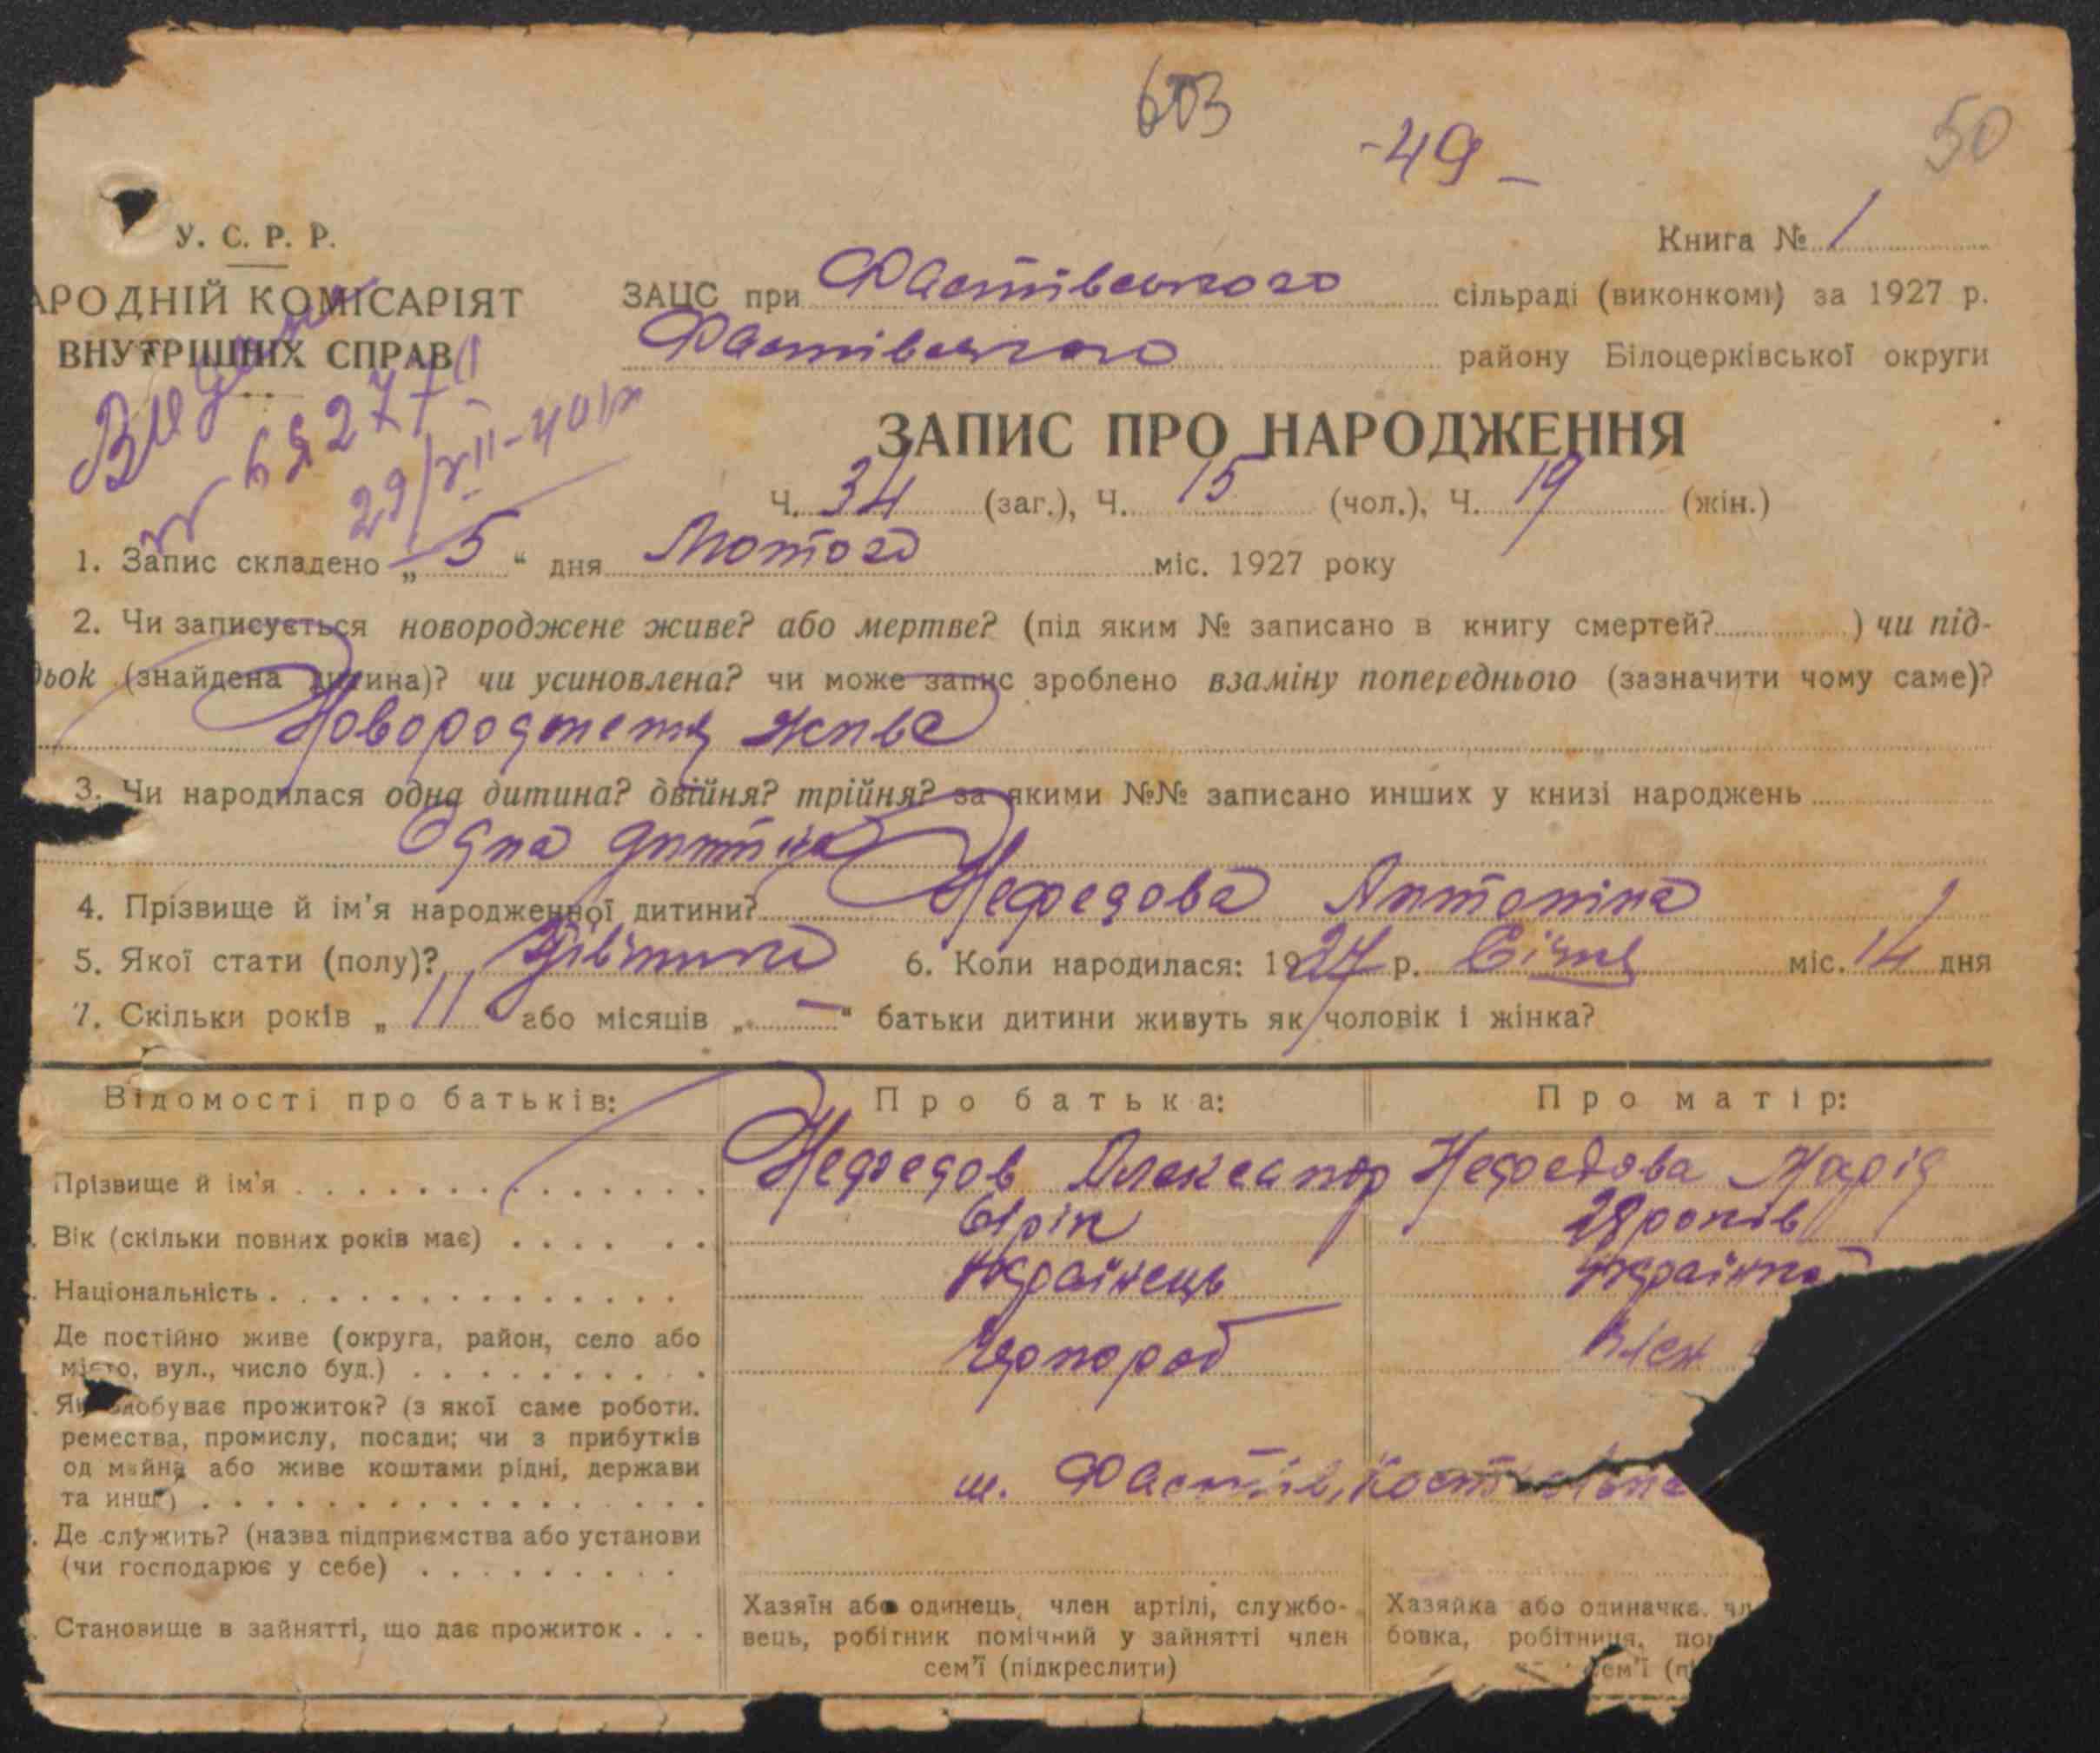 603
-49-
50
У. С. Р. Р.
Книга № 1
АРОДНІЙ КОМІСАРІЯТ
ВНУТРІШНІХ СПРАВ
ЗАЦС при Фастівського сільраді (виконкомі) за 1927 р.
Фастівського району Білоцерківської округи
ЗАПИС ПРО НАРОДЖЕННЯ
Ч. 34 (заг.), Ч. 15 (чол.), Ч. 19 (жін.)
1. Запис складено „ 5 “ дня Лютого міс. 1927 року
2. Чи записується новороджене живе? або мертве? (під яким № записано в книгу смертей? ) чи під-
ьок (знайдена дитина)? чи усиновлена? чи може запис зроблено взаміну попереднього (зазначити чому саме)?
Новородженя живе
3. Чи народилася одна дитина? двійня? трійня? за якими №№ записано инших у книзі народжень
Одна дитина
4. Прізвище й ім'я народженної дитини? Нефедова Антоніна
5. Якої стати (полу)? Дівчина 6. Коли народилася: 1927 р. Січня міс. 14 дня
7. Скільки років „ 11 “ або місяців „ — “ батьки дитини живуть як чоловік і жінка?
Відомості про батьків: Про батька: Про матір:
Прізвище й ім'я Нефедов Олександр Нефедова Марія
Вік (скільки повних років має) рік 28 років
Національність Українець Українка
Де постійно живе (округа, район, село або
місто, вул., число буд.)
Як здобуває прожиток? (з якої саме роботи.
ремества, промислу, посади; чи з прибутків
од майна або живе коштами рідні, держави
та инш.) м. Фастів,
Де служить? (назва підприємства або установи
(чи господарює у себе)
Становище в зайнятті, що дає прожиток
Хазяїн або одинець, член артілі, службо-
вець, робітник помічний у зайнятті член
сем'ї (підкреслити)
Хазяйка або одиначка, чл
бовка, робітниця, по
сем'ї (п